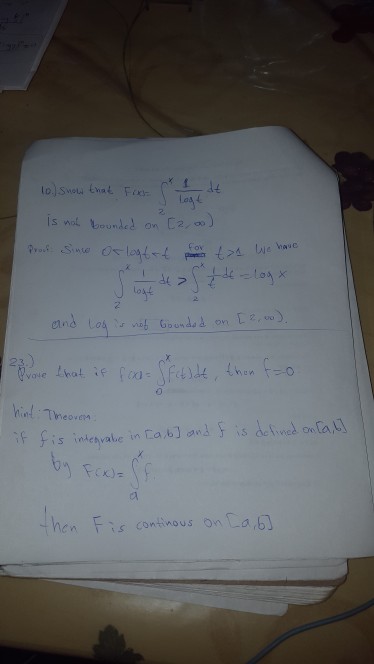 10) Show that F(x) = ∫₂ˣ 1/log t dt
is not bounded on [2, ∞)
Proof: Since 0 < log t < t for t > 1 we have
∫₂ˣ 1/log t dt > ∫₂ˣ 1/t dt = log x
and log is not bounded on [2, ∞).
23.)
Prove that if f(x) = ∫₀ˣ f(t) dt, then f=0
hint: Theorem:
if f is integrable in [a,b] and f is defined on [a,b]
by F(x) = ∫ₐˣ f
then F is continous on [a,b]